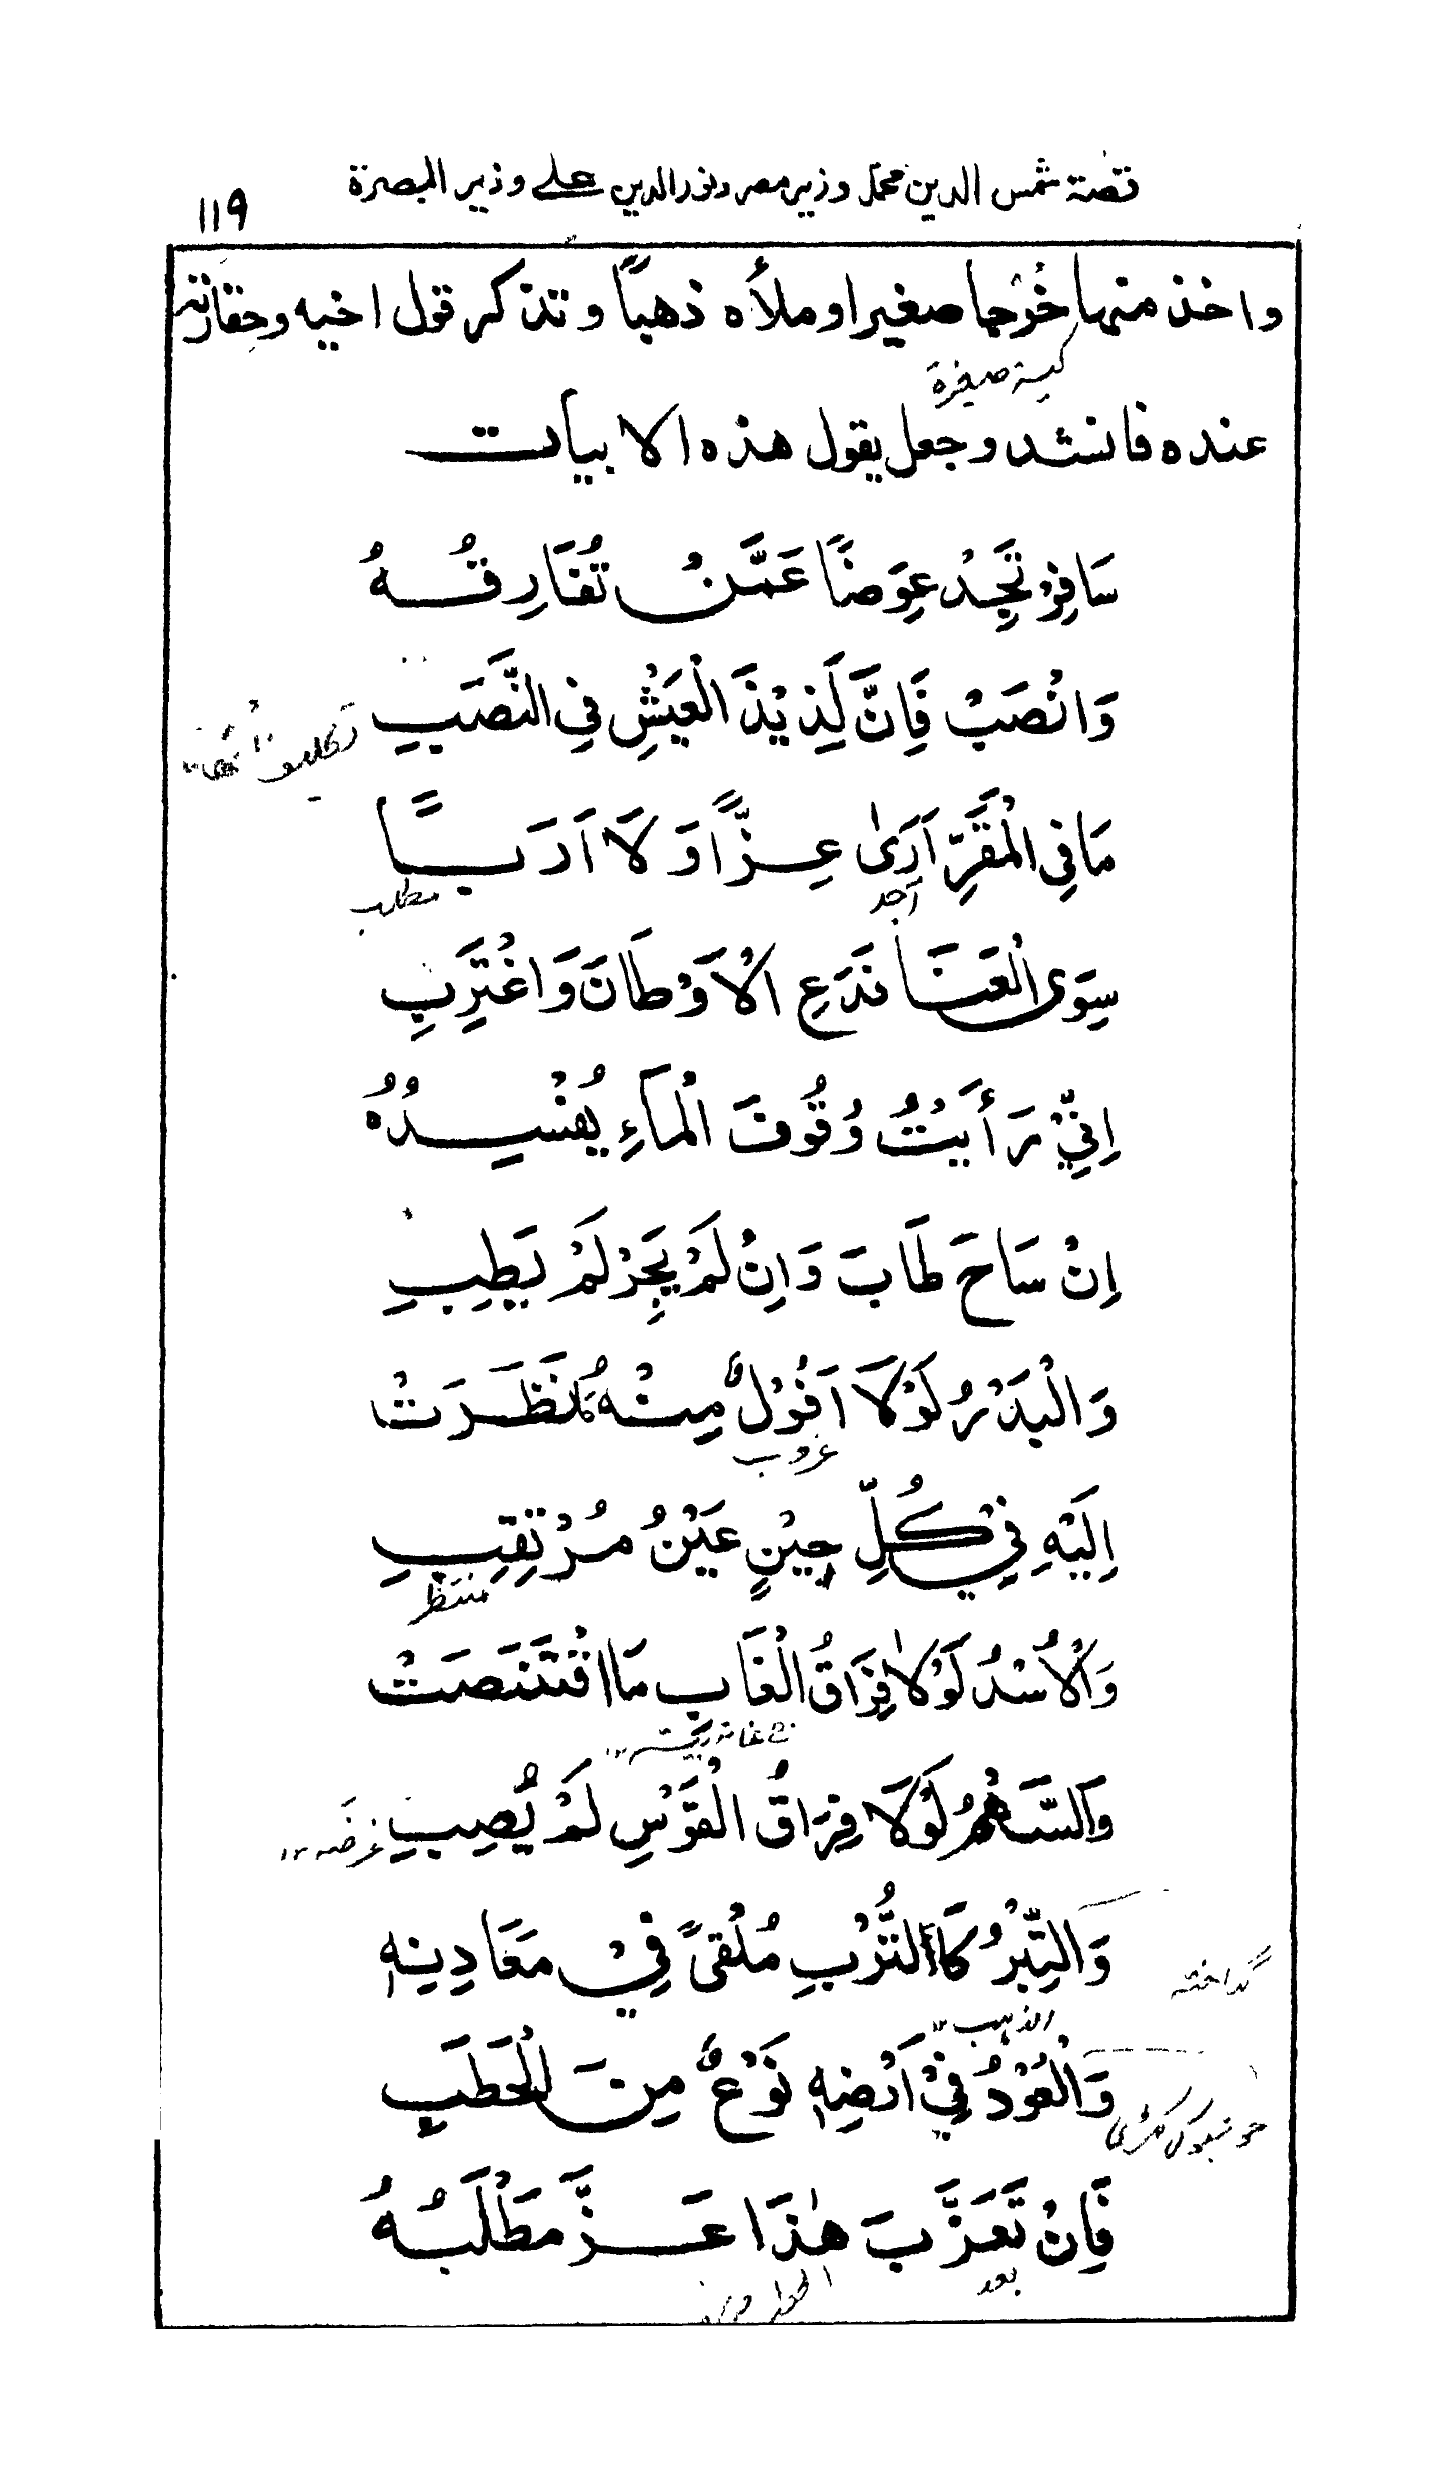 قصة شمس الدين محمد وزير مصر ونور الدين علے وزير البصرة
١١٩
واخذ منها خُرْجا صغيرا وملأه ذهباً وتذكر قول اخيه وحقارته
كيسة صغيرة
عنده فانشد وجعل يقول هذه الابيات
سَافِرْ تَجِدْ عِوَضًا عَمَّنْ تُفَارِقُهُ
وَانْصَبْ فَاِنَّ لَذِيْذَ الْعَيْشِ فِي النَّصَبِ
تكليف
مَا فِي الْمَقَرِّ اَرَىٰ عِزًّا وَلَا اَدَبًا
اجد
مطلب
سِوَى الْعَنَا فَدَعِ الْاَوْطَانَ وَاغْتَرِبِ
اِنِّيْ رَأَيْتُ وُقُوفَ الْمَاءِ يُفْسِدُهُ
اِنْ سَاحَ طَابَ وَاِنْ لَمْ يَجْرِ لَمْ يَطِبِ
وَالْبَدْرُ لَوْلَا اَفُوْلٌ مِنْهُ مَا نَظَرَتْ
غروب
اِلَيْهِ فِيْ كُلِّ حِيْنٍ عَيْنُ مُرْتَقِبِ
منتظر
وَالْاُسْدُ لَوْلَا فِرَاقُ الْغَابِ مَا اقْتَنَصَتْ
وَالسَّهْمُ لَوْلَا فِرَاقُ الْقَوْسِ لَمْ يُصِبِ
غرضه ١٢
وَالتِّبْرُ كَالتُّرْبِ مُلْقىً فِيْ مَعَادِنِهِ
الذهب
وَالْعُوْدُ فِيْ اَرْضِهِ نَوْعٌ مِنَ الْحَطَبِ
فَاِنْ تَغَرَّبَ هٰذَا عَزَّ مَطْلَبُهُ
بعد